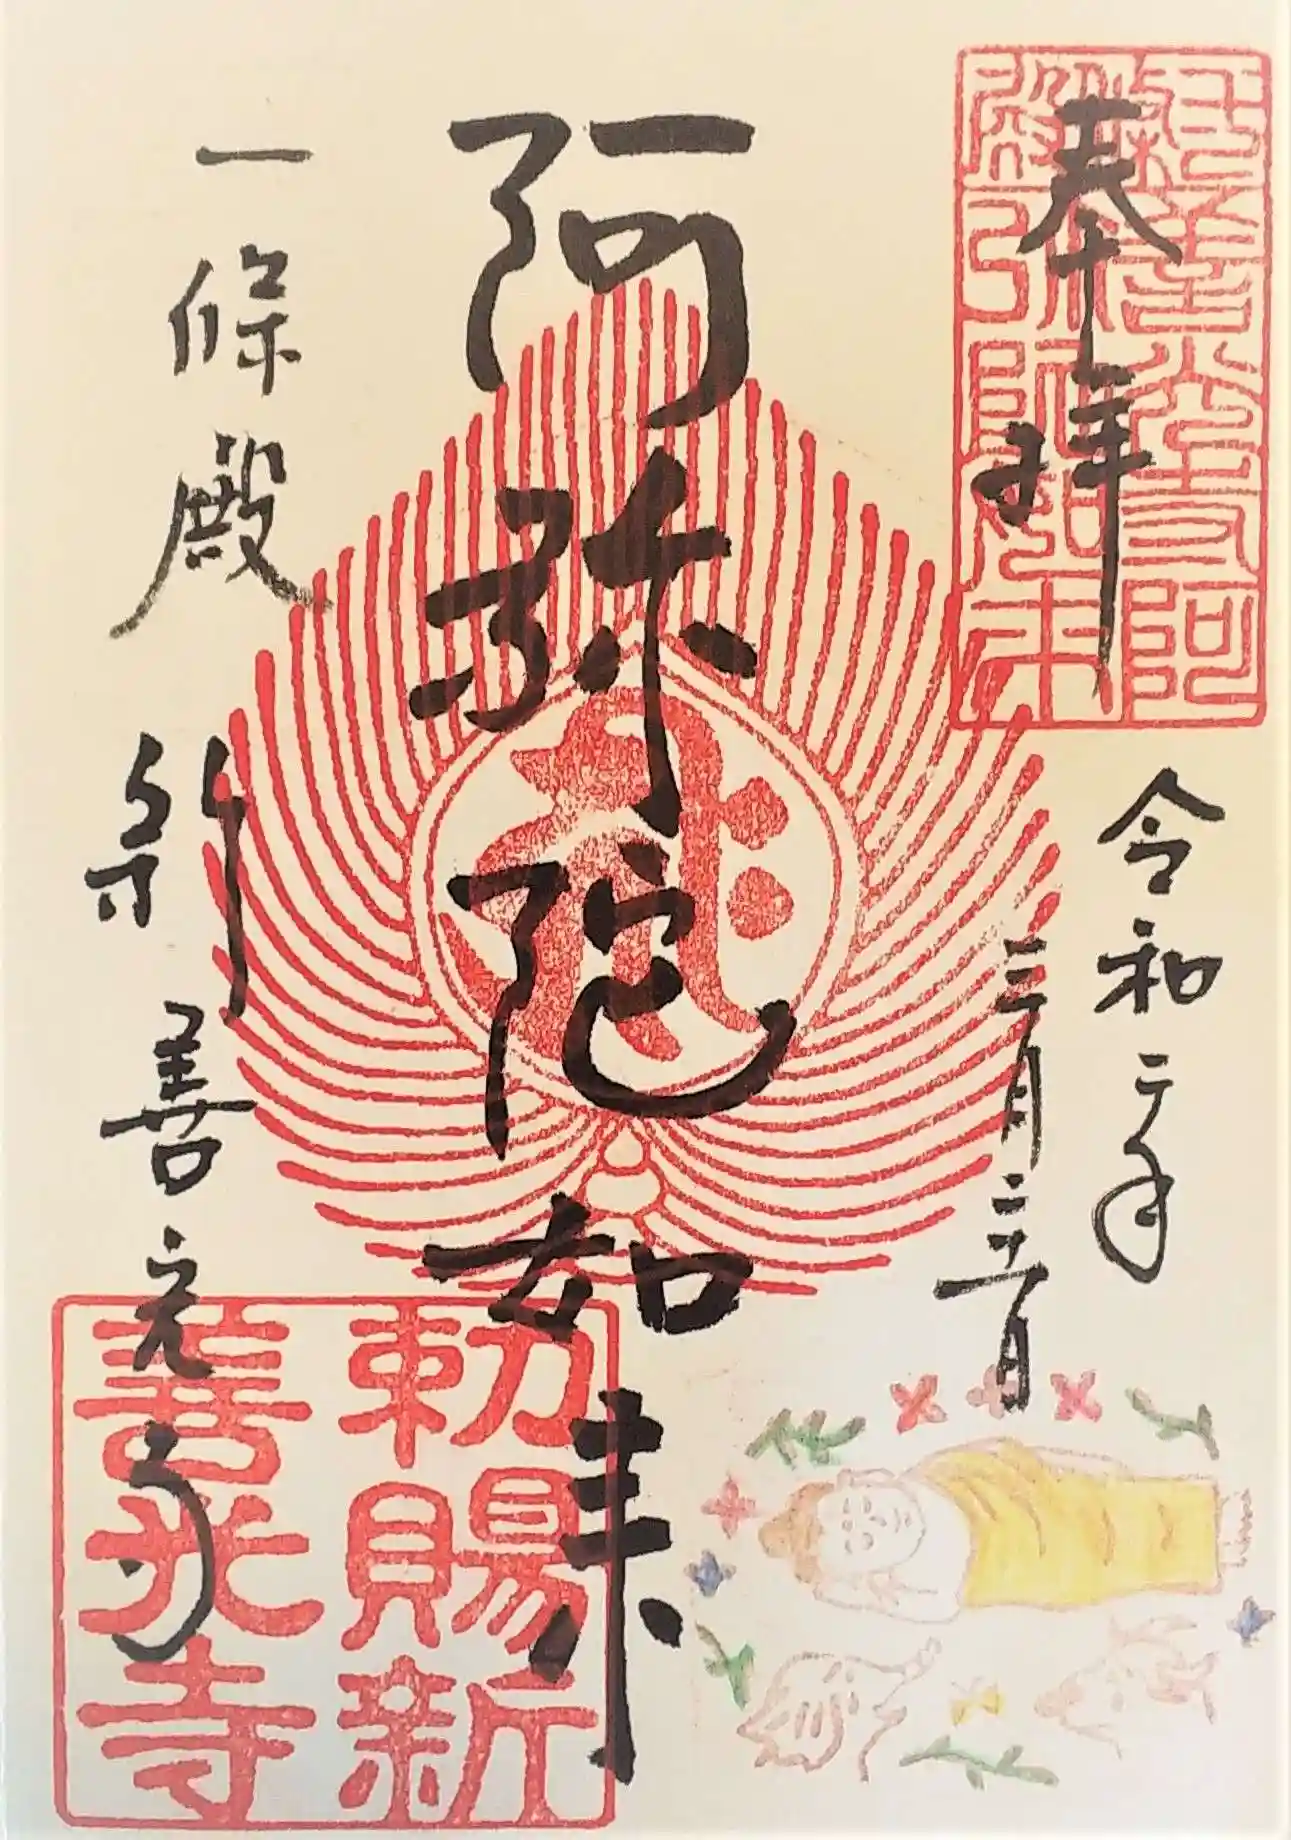 奉拝
令和二年
三月二十一日
阿弥陀如来
一條殿
新善光寺
勅賜新
善光寺